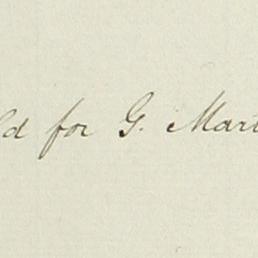 ld for G. Mart